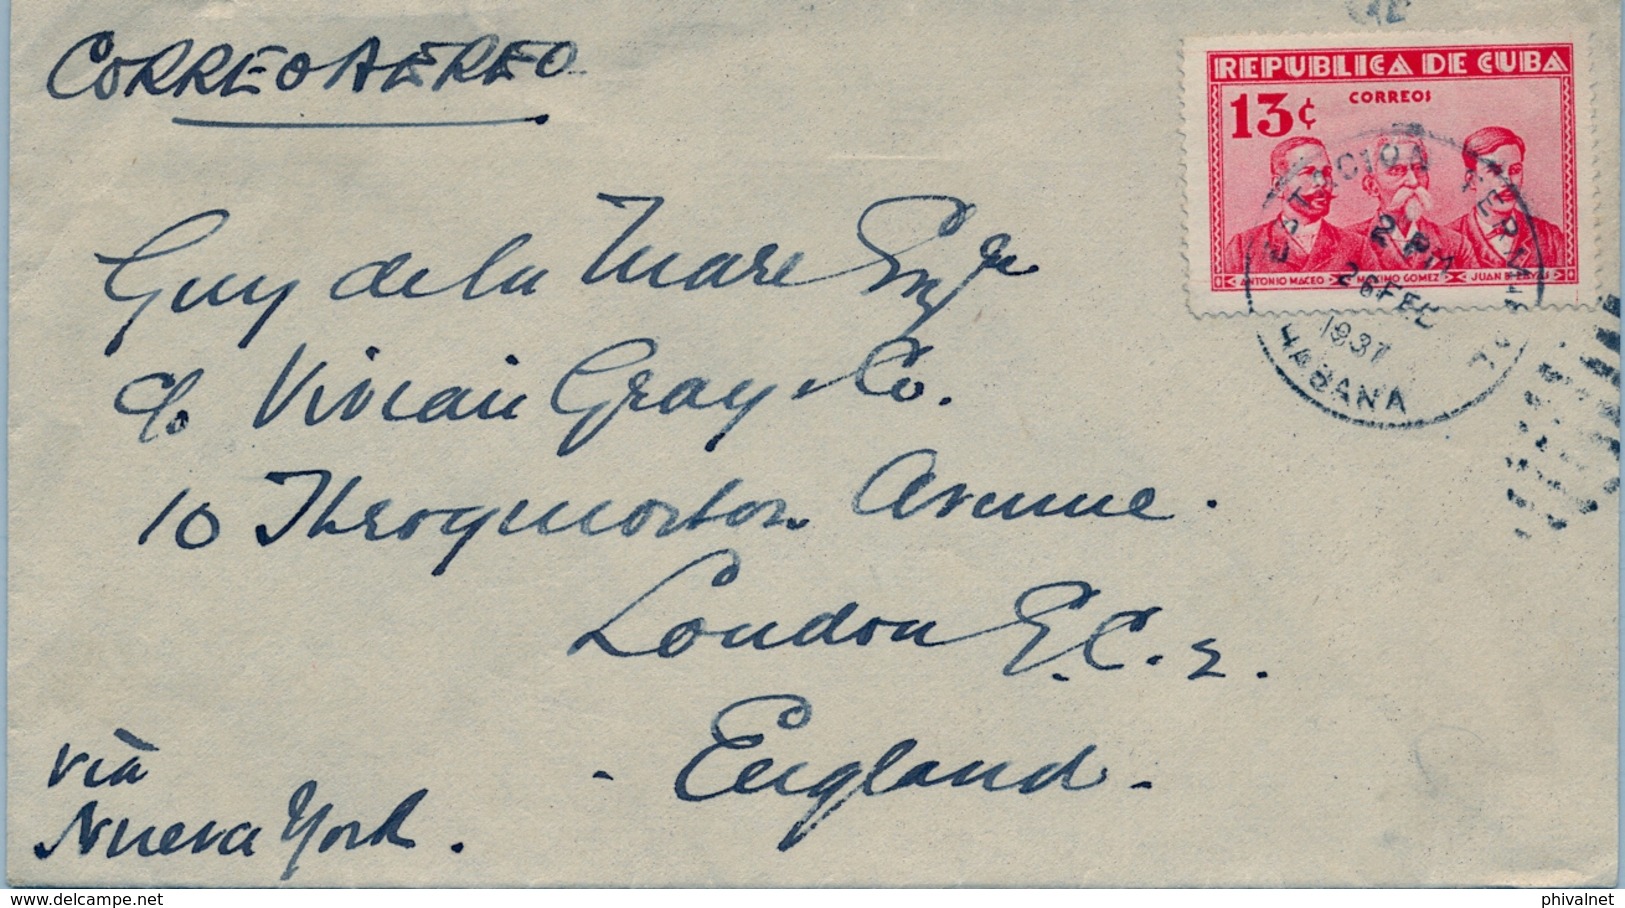 CORREO AEREO
REPUBLICA DE CUBA
13¢
CORREOS
ANTONIO MACEO
MAXIMO GOMEZ
JUAN B. ZAYAS
ESTACION TERMINAL
2 PM
26 FEB
1937
HABANA
Guy de la Mare Esqr
c/o Vivian Gray & Co.
10 Throgmorton Avenue.
London E.C.2.
- England.
via
Nueva York.
delcampe.net
phivalnet